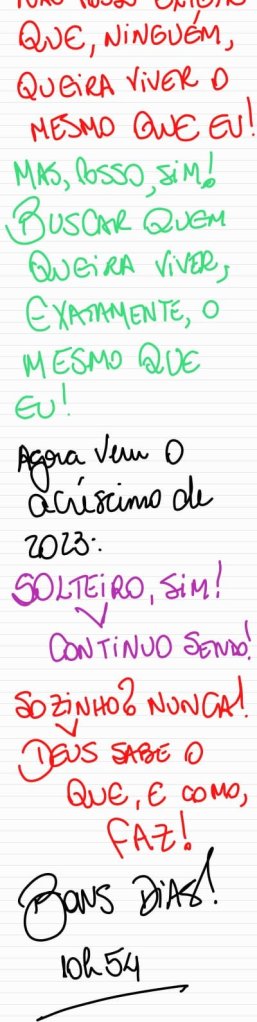 QUE, NINGUÉM,
QUEIRA VIVER O
MESMO QUE EU!
MAS, POSSO, SIM!
BUSCAR QUEM
QUEIRA VIVER,
EXATAMENTE, O
MESMO QUE
EU!
Agora vem o
acréscimo de
2023:
SOLTEIRO, SIM!
CONTINUO SENDO!
SOZINHO? NUNCA!
DEUS SABE O
QUE, E COMO,
FAZ!
BONS DIAS!
10h54